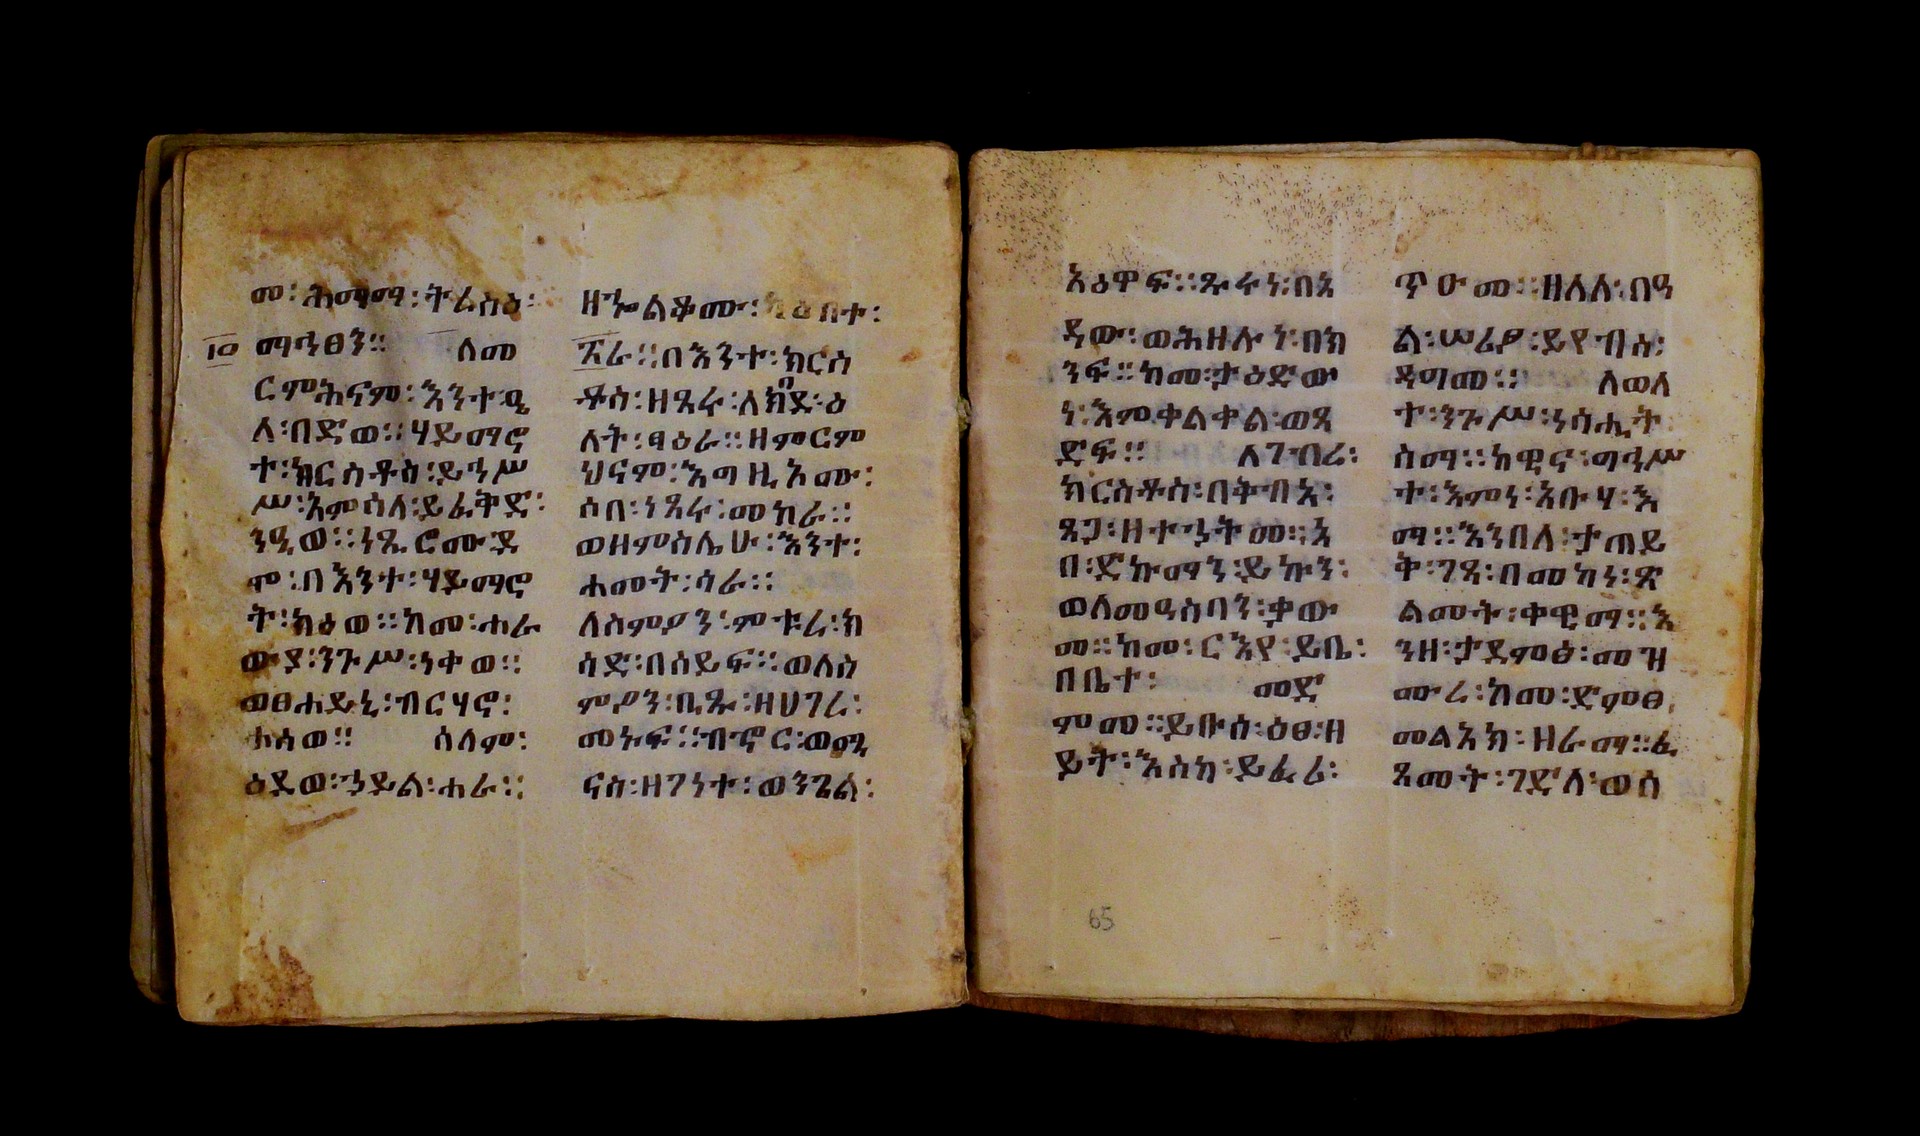 መ፡ሕማማ፡ትረስዕ፡
፲፬ ማኅፀን። ለመ
ርምሕናም፡እንተ፡ዔ
ለ፡በድወ።ሃይማኖ
ተ፡ክርስቶስ፡ይኅሥ
ሥ፡እምሰለ፡ይፈቅድ፡
ንዒወ።ነጺሮሙ፡ደ
ሞ፡በእንተ፡ሃይማኖ
ት፡ክዕወ።ከመ፡ሐራ
ውያ፡ንጉሥ፡ነቀወ።
ወፀሐይኒ፡ብርሃኖ፡
ኀሰወ። ሰላም፡
ዕደወ፡ኀይል፡ሐራ።
ዘኍልቆሙ፡ክዕበተ፡
፳ራ።በእንተ፡ክርስ
ቶስ፡ዘጼሩ፡ለክቡደ፡ዕ
ለት፡ፃዕራ።ዘምርም
ህናም፡እግዚኦሙ፡
ሶበ፡ነጸሩ፡መከራ።
ወዘምስሌሁ፡እንተ፡
ሐመት፡ሳራ።
ለስምዖን፡ምቱረ፡ክ
ሳድ፡በሰይፍ።ወለስ
ምዖን፡ቢጹ፡ዘሀገረ፡
መኑፍ።ብኖር፡ወሚ
ናስ፡ዘገነተ፡ወንጌል፡
አዕዋፍ።ጹሩነ፡በአ
ዳው፡ወሕዘሉነ፡በክ
ንፍ።ከመ፡ታዕድው
ነ፡እምቀልቀል፡ወጸ
ድፍ። ለገብረ፡
ክርስቶስ፡በትብእ፡
ጸጋ፡ዘተኅትመ።አ
በ፡ድኩማን፡ይኩን፡
ወለመዓስባን፡ቃው
መ።ከመ፡ርእየ፡ይቤ፡
በቤተ፡ መድ
ምመ።ይቡሰ፡ዕፀ፡ዘ
ይት፡እስከ፡ይፈሪ፡
ጥዑመ።ዘለለ፡በዓ
ል፡ሠሪፆ፡ይየብስ፡
ዳግመ። ለወለ
ተ፡ንጉሥ፡ነሳሒት
ስማ።ከዊና፡ማኅሥ
ተ፡እምነ፡አቡሃ፡እ
ማ።እንበለ፡ታጠይ
ቅ፡ገጸ፡በመከነ፡ጽ
ልመት፡ቀዊማ።እ
ንዘ፡ታደምፅ፡መዝ
ሙረ፡ከመ፡ድምፀ፡
መልአክ፡ዘራማ።ፈ
ጸመት፡ገድለ፡ወሰ
65